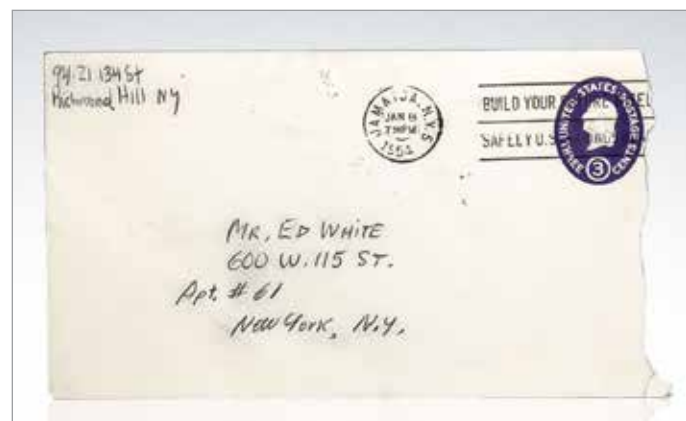 94-21 134 St
Richmond Hill NY
JAMAICA, N.Y.S
JAN 8
PM
BUILD YOUR
SAFELY U.S.
UNITED STATES POSTAGE
THREE 3 CENTS
MR. ED WHITE
600 W. 115 ST.
Apt. # 61
New York, N.Y.